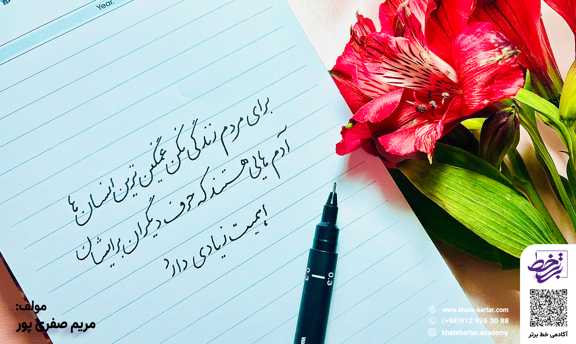 Year
برای مردم زندگی نکن غمگین ترین انسان ها
آدم هایی هستند که حرف دیگران برایشان
اهمیت زیادی دارد
0.3
مولف:
مریم صفری پور
خط برتر
www.khate-bartar.com
khatebartar.academy
آکادمی خط برتر